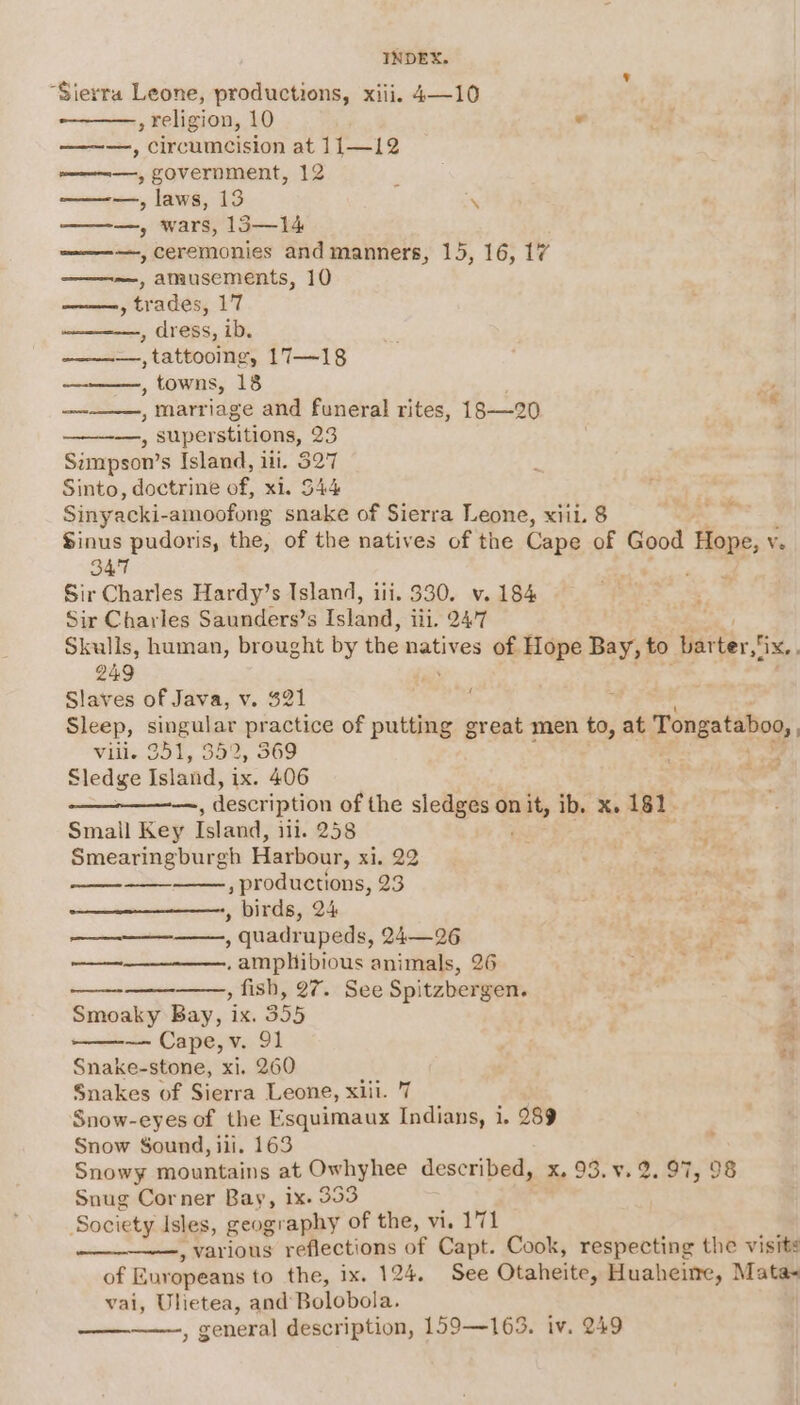 INDEX.
Sierra Leone, productions, xiii. 4—10
———, religion, 10
———, circumcision at 11—12
———, government, 12
———, laws, 13
———, wars, 13—14
———, ceremonies and manners, 15, 16, 17
———, amusements, 10
———, trades, 17
———, dress, ib.
———, tattooing, 17—18
———, towns, 18
———, marriage and funeral rites, 18—20
———, superstitions, 23
Simpson's Island, iii. 327
Sinto, doctrine of, xi. 344
Sinyacki-amoofong snake of Sierra Leone, xiii. 8
Sinus pudoris, the, of the natives of the Cape of Good Hope, v.
347
Sir Charles Hardy's Island, iii. 330. v. 184
Sir Charles Saunders's Island, iii. 247
Skulls, human, brought by the natives of Hope Bay, to barter, ix.
249
Slaves of Java, v. 321
Sleep, singular practice of putting great men to, at Tongataboo,
viii. 351, 352, 369
Sledge Island, ix. 406
———, description of the sledges on it, ib. x. 181
Small Key Island, iii. 258
Smearingburgh Harbour, xi. 22
——— ———, productions, 23
——— ———, birds, 24
——— ———, quadrupeds, 24—26
——— ———, amphibious animals, 26
——— ———, fish, 27. See Spitzbergen.
Smoaky Bay, ix. 355
——— Cape, v. 91
Snake-stone, xi. 260
Snakes of Sierra Leone, xiii. 7
Snow-eyes of the Esquimaux Indians, i. 289
Snow Sound, iii. 163
Snowy mountains at Owhyhee described, x. 93. v. 2. 97, 98
Snug Corner Bay, ix. 353
Society Isles, geography of the, vi. 171
———, various reflections of Capt. Cook, respecting the visits
of Europeans to the, ix. 124. See Otaheite, Huaheine, Mata-
vai, Ulietea, and Bolobola.
———, general description, 159—163. iv. 249